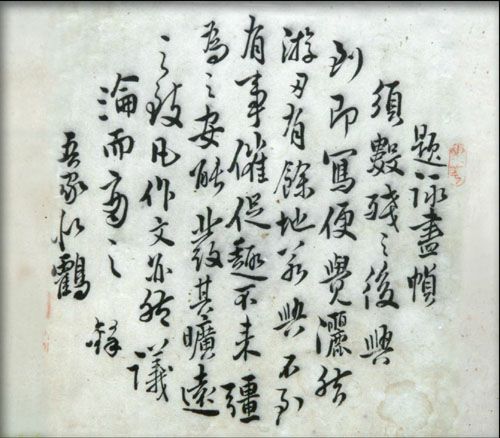 題詠畫幀
須數殘之後興
到即寫便覺灑然
游刃有餘地若興不到
有事催促趣不來彊
為之安能致其曠遠
之致凡作文亦然議
淪而之
吾家鶴